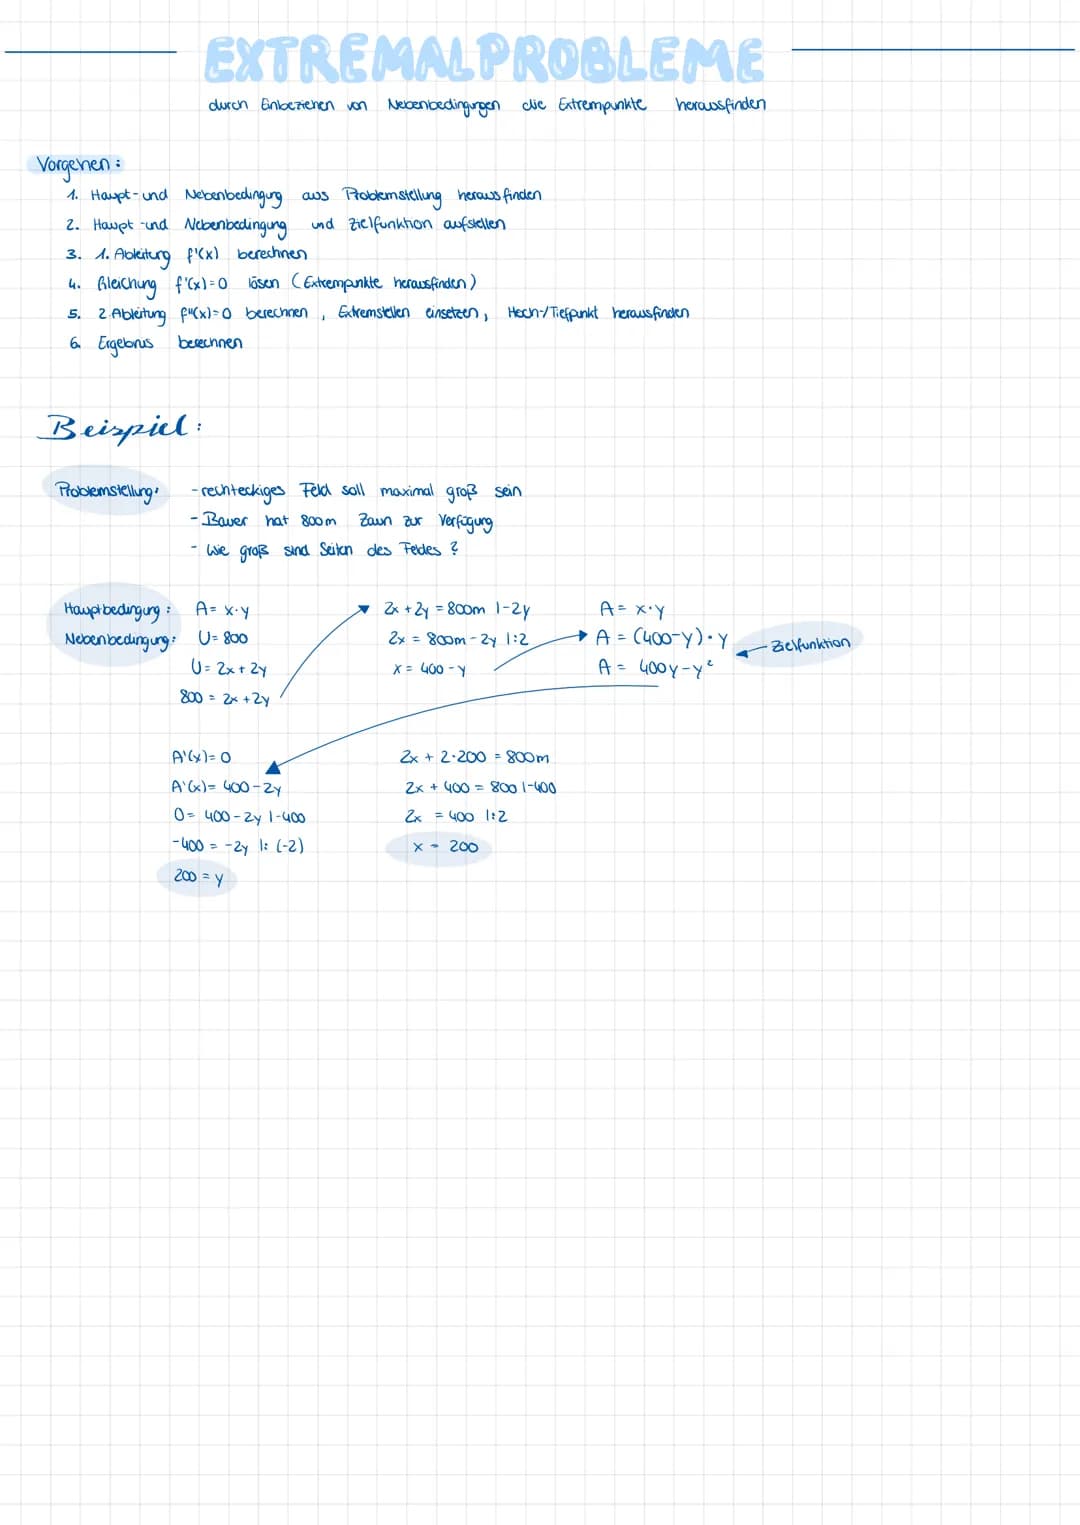 EXTREMALPROBLEME
durch Einbeziehen von Nebenbedingungen die Extrempunkte herausfinden
Vorgehen:
1. Haupt- und Nebenbedingung aus Problemstellung herausfinden
2. Haupt -und Nebenbedingung und Zielfunktion aufstellen
3. 1. Ableitung f'(x) berechnen
4. Gleichung f'(x)=0 lösen (Extrempunkte herausfinden)
5. 2. Ableitung f"(x)=0 berechnen, Extremstellen einsetzen, Hoch-/Tiefpunkt herausfinden
6. Ergebnis berechnen
Beispiel:
Problemstellung:
- rechteckiges Feld soll maximal groß sein
- Bauer hat 800m Zaun zur Verfügung
- Wie groß sind Seiten des Feldes?
Hauptbedingung: A = x·y
Nebenbedingung: U = 800
U = 2x + 2y
800 = 2x + 2y
2x + 2y = 800m |-2y
2x = 800m - 2y |:2
x = 400 - y
A = x·y
A = (400-y)·y
A = 400y-y²
Zielfunktion
A'(x) = 0
A'(x) = 400 - 2y
0 = 400 - 2y |-400
-400 = -2y |: (-2)
200 = y
2x + 2·200 = 800m
2x + 400 = 800 |-400
2x = 400 |:2
x = 200